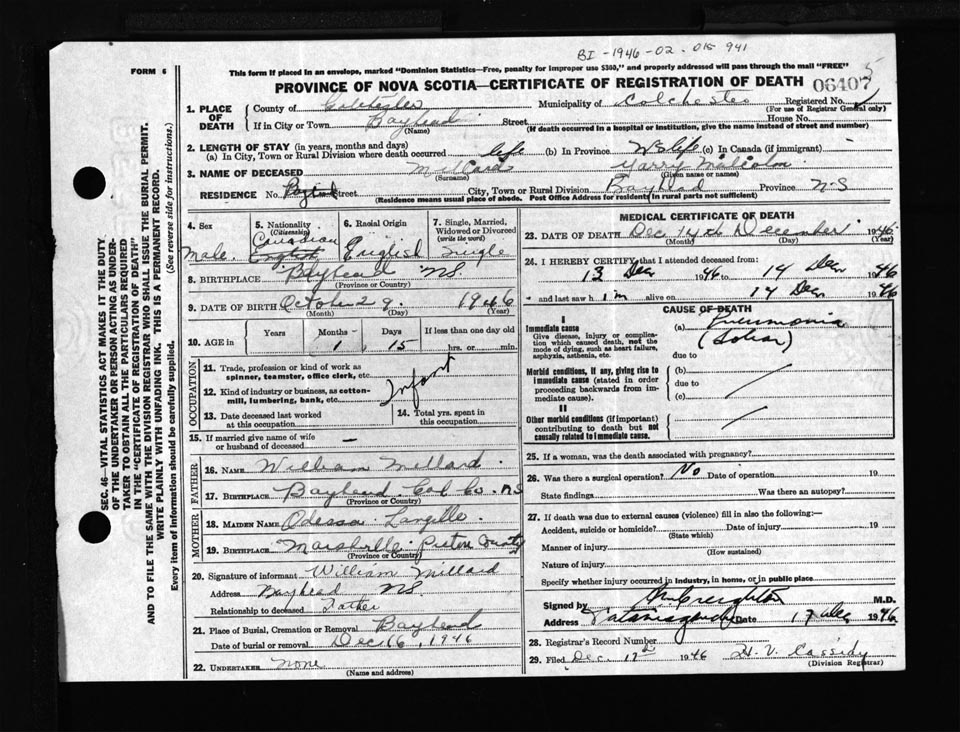 BI-1946-02-015 941
FORM 6
This form if placed in an envelope, marked "Dominion Statistics—Free, penalty for improper use $300," and properly addressed will pass through the mail "FREE"
PROVINCE OF NOVA SCOTIA—CERTIFICATE OF REGISTRATION OF DEATH
06407 5
Registered No.
(For use of Registrar General only)
1. PLACE OF DEATH
County of Colchester Municipality of Colchester
If in City or Town Bayhead Street House No.
(Name) (If death occurred in a hospital or institution, give the name instead of street and number)
2. LENGTH OF STAY (in years, months and days)
(a) In City, Town or Rural Division where death occurred life (b) In Province N S life (c) In Canada (if immigrant)
3. NAME OF DECEASED Millard Malcolm
(Surname) (Given name or names)
RESIDENCE No. Street City, Town or Rural Division Bayhead Province N-S
(Residence means usual place of abode. Post Office Address for residents in rural parts not sufficient)
4. Sex
Male
5. Nationality
(Citizenship)
Canadian
English
6. Racial Origin
English
7. Single, Married, Widowed or Divorced
(write the word)
Single
8. BIRTHPLACE Bayhead NS
(Province or Country)
9. DATE OF BIRTH October 29 1946
(Month) (Day) (Year)
10. AGE in
Years Months Days If less than one day old
1 15 hrs. or min.
OCCUPATION
11. Trade, profession or kind of work as spinner, teamster, office clerk, etc.
12. Kind of industry or business, as cotton-mill, lumbering, bank, etc.
Infant
13. Date deceased last worked at this occupation
14. Total yrs. spent in this occupation
15. If married give name of wife or husband of deceased —
FATHER
16. NAME William Millard
17. BIRTHPLACE Bayhead Col Co. NS
(Province or Country)
MOTHER
18. MAIDEN NAME Odessa Langille
19. BIRTHPLACE Marshville Pictou County
(Province or Country)
20. Signature of informant William Millard
Address Bayhead NS
Relationship to deceased Father
21. Place of Burial, Cremation or Removal Bayhead
Date of burial or removal Dec 16, 1946
22. UNDERTAKER none
(Name and address)
MEDICAL CERTIFICATE OF DEATH
23. DATE OF DEATH Dec 14th December 1946
(Month) (Day) (Year)
24. I HEREBY CERTIFY that I attended deceased from:
13 Dec 1946 to 14 Dec 1946
and last saw him alive on 14 Dec 1946
CAUSE OF DEATH
I
Immediate cause
Give disease, injury or complication which caused death, not the mode of dying, such as heart failure, asphyxia, asthenia, etc.
(a) Pneumonia
(Lobar)
due to
Morbid conditions, if any, giving rise to immediate cause (stated in order proceeding backwards from immediate cause).
(b)
due to
(c)
II
Other morbid conditions (if important) contributing to death but not causally related to immediate cause.
25. If a woman, was the death associated with pregnancy?
26. Was there a surgical operation? No Date of operation 19
State findings Was there an autopsy?
27. If death was due to external causes (violence) fill in also the following:
Accident, suicide or homicide? Date of injury 19
(State which)
Manner of injury
(How sustained)
Nature of injury
Specify whether injury occurred in industry, in home, or in public place
Signed by Creighton M.D.
Address Tatamagouche Date 17 Dec 1946
28. Registrar's Record Number
29. Filed Dec. 17th 1946 H. V. Cassidy
(Division Registrar)
SEC. 46—VITAL STATISTICS ACT MAKES IT THE DUTY OF THE UNDERTAKER OR PERSON ACTING AS UNDERTAKER TO OBTAIN ALL THE PARTICULARS REQUIRED IN THE "CERTIFICATE OF REGISTRATION OF DEATH"
AND TO FILE THE SAME WITH THE DIVISION REGISTRAR WHO SHALL ISSUE THE BURIAL PERMIT.
WRITE PLAINLY WITH UNFADING INK. THIS IS A PERMANENT RECORD.
Every item of information should be carefully supplied. (See reverse side for instructions.)